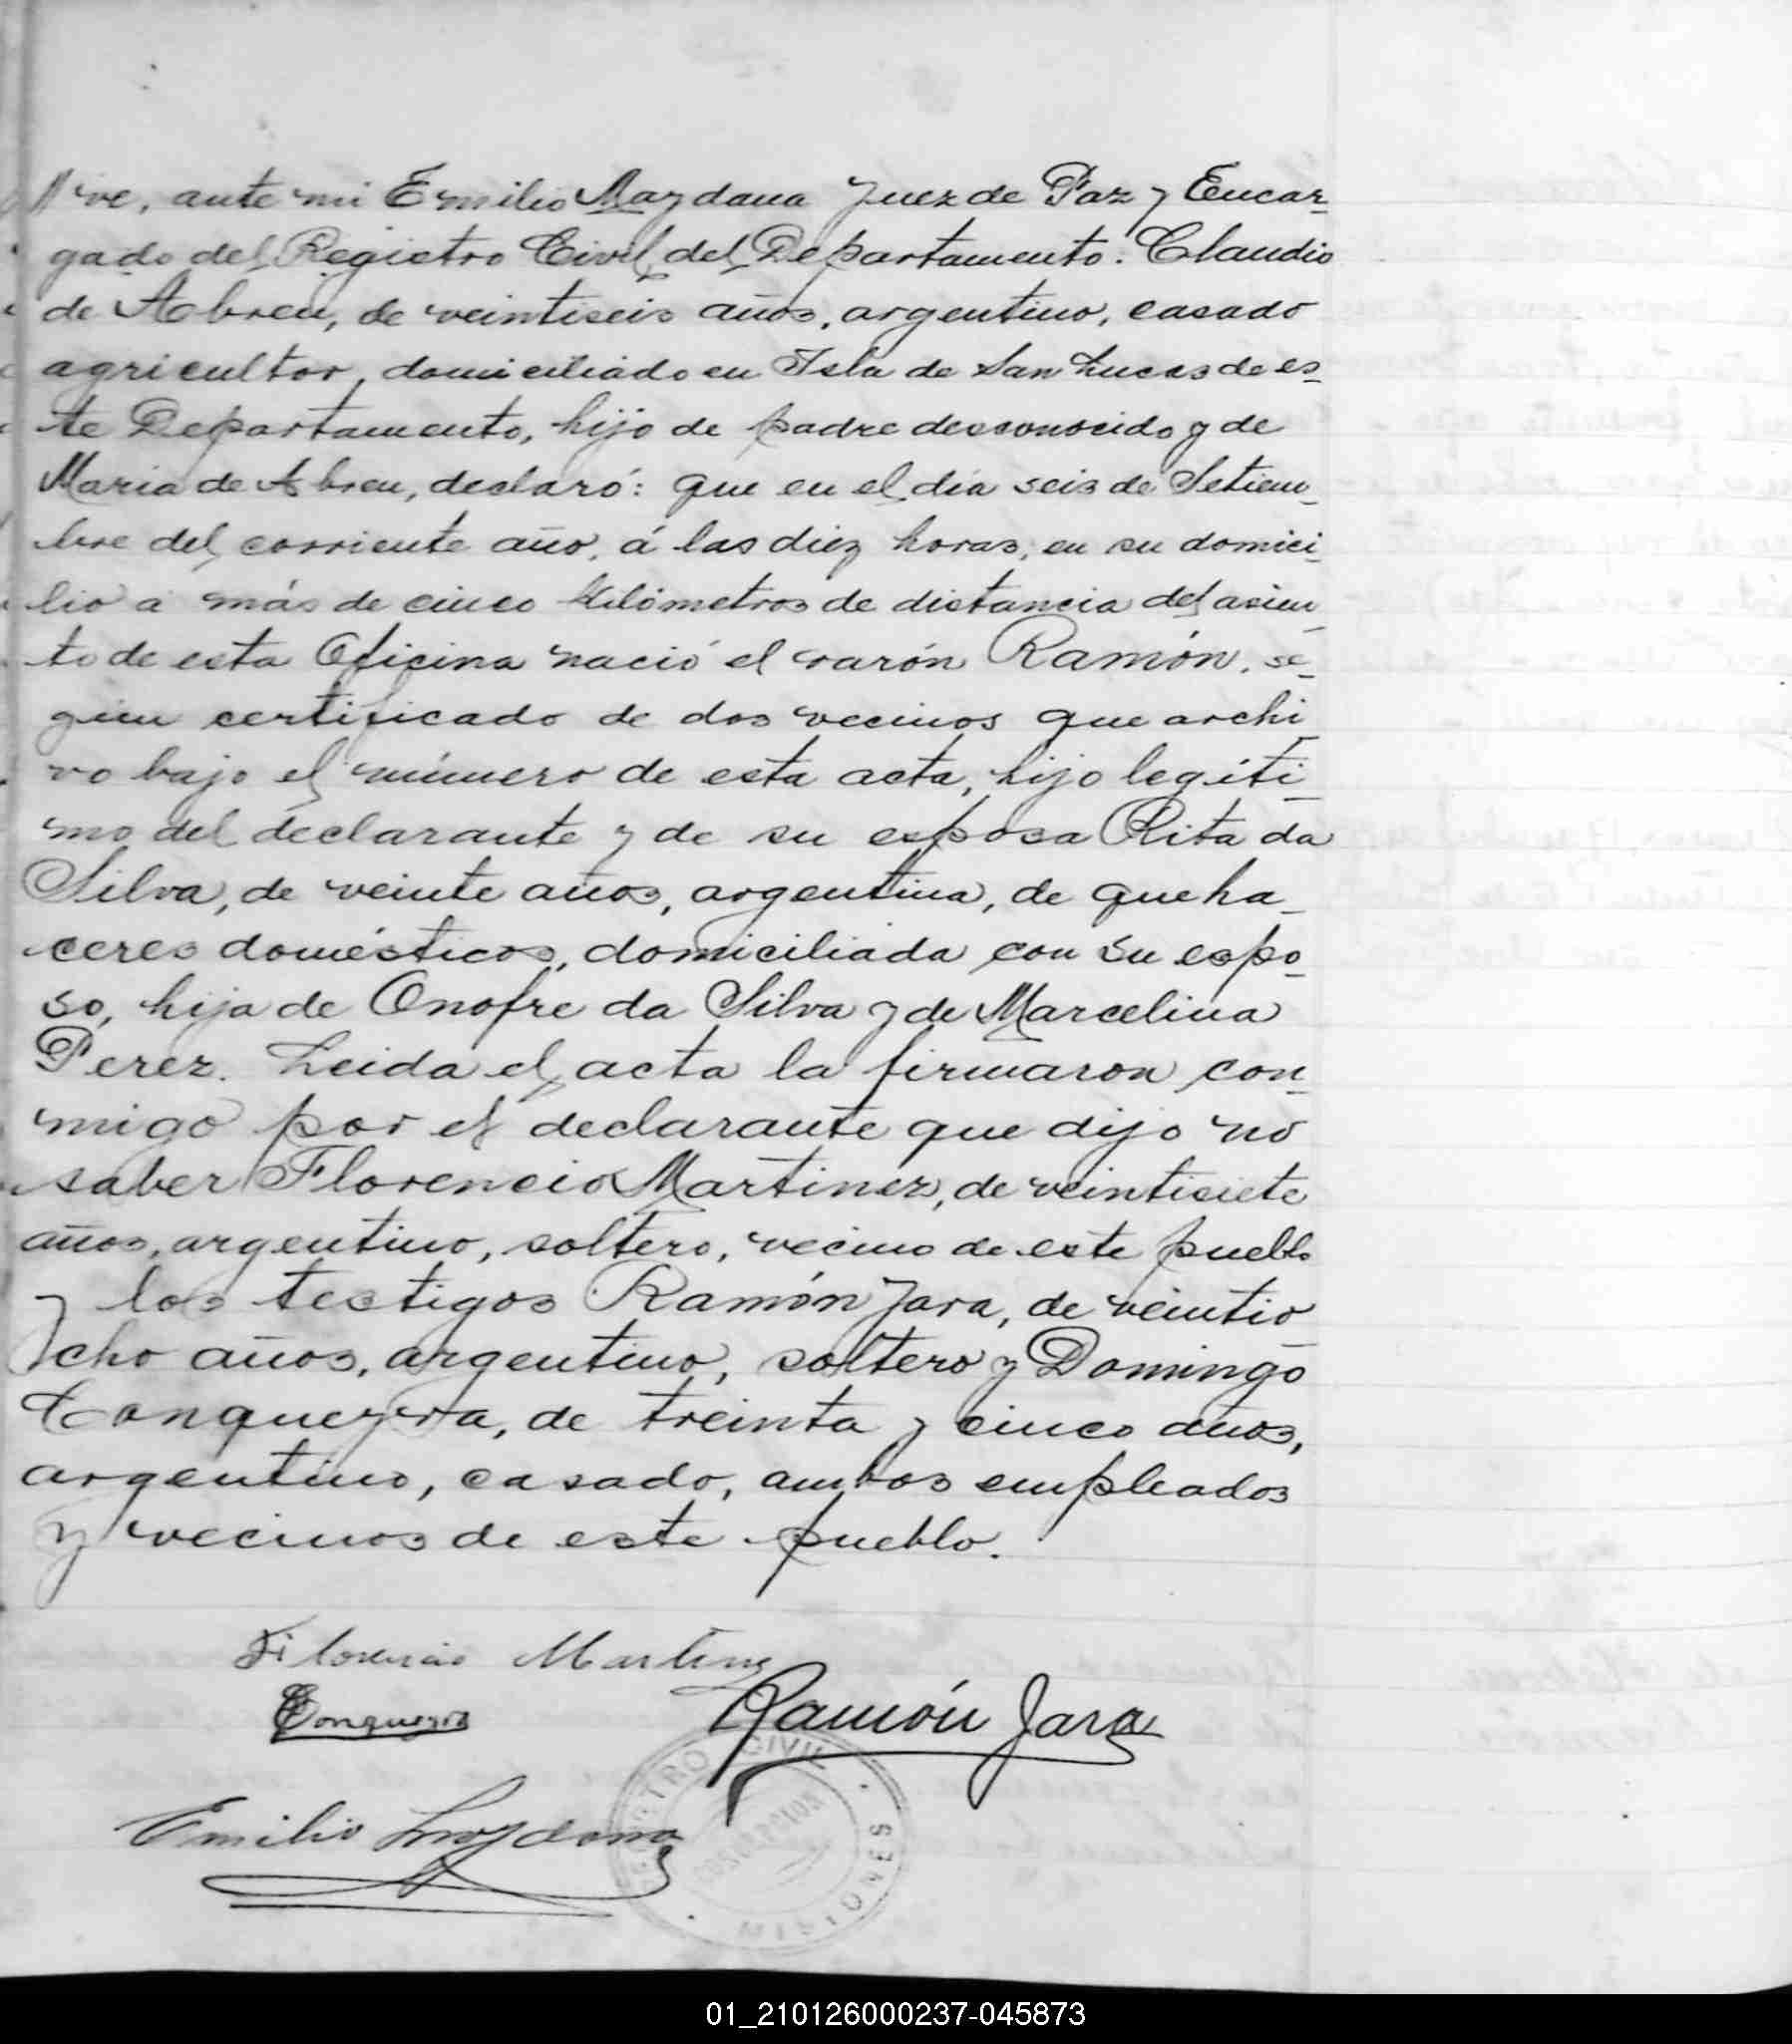 ve, ante mi Emilio Maydana Juez de Paz y Encar-
gado del Registro Civil del Departamento: Claudio
de Abreu, de veintiseis años, argentino, casado
agricultor, domiciliado en Isla de San Lucas de es-
te Departamento, hijo de padre desconocido y de
Maria de Abreu, declaró: que en el dia seis de Setiem-
bre del corriente año, á las diez horas, en su domici-
lio a más de cinco kilómetros de distancia del asien-
to de esta Oficina nació el varón Ramón, se-
gun certificado de dos vecinos que archi-
vo bajo el número de esta acta, hijo legíti-
mo del declarante y de su esposa Rita da
Silva, de veinte años, argentina, de queha-
ceres domésticos, domiciliada con su espo-
so, hija de Onofre da Silva y de Marcelina
Perez. Leida el acta la firmaron con-
migo por el declarante que dijo no
saber Florencio Martinez, de veintisiete
años, argentino, soltero, vecino de este pueblo
y los testigos Ramón Jara, de veintio-
cho años, argentino, soltero y Domingo
Conqueyra, de treinta y cinco años,
argentino, casado, ambos empleados
y vecinos de este pueblo.
Florencio Martinez
Conqueyra
Ramón Jara
REGISTRO CIVIL
CONCEPCION
MISIONES
Emilio Maydana
01_210126000237-045873